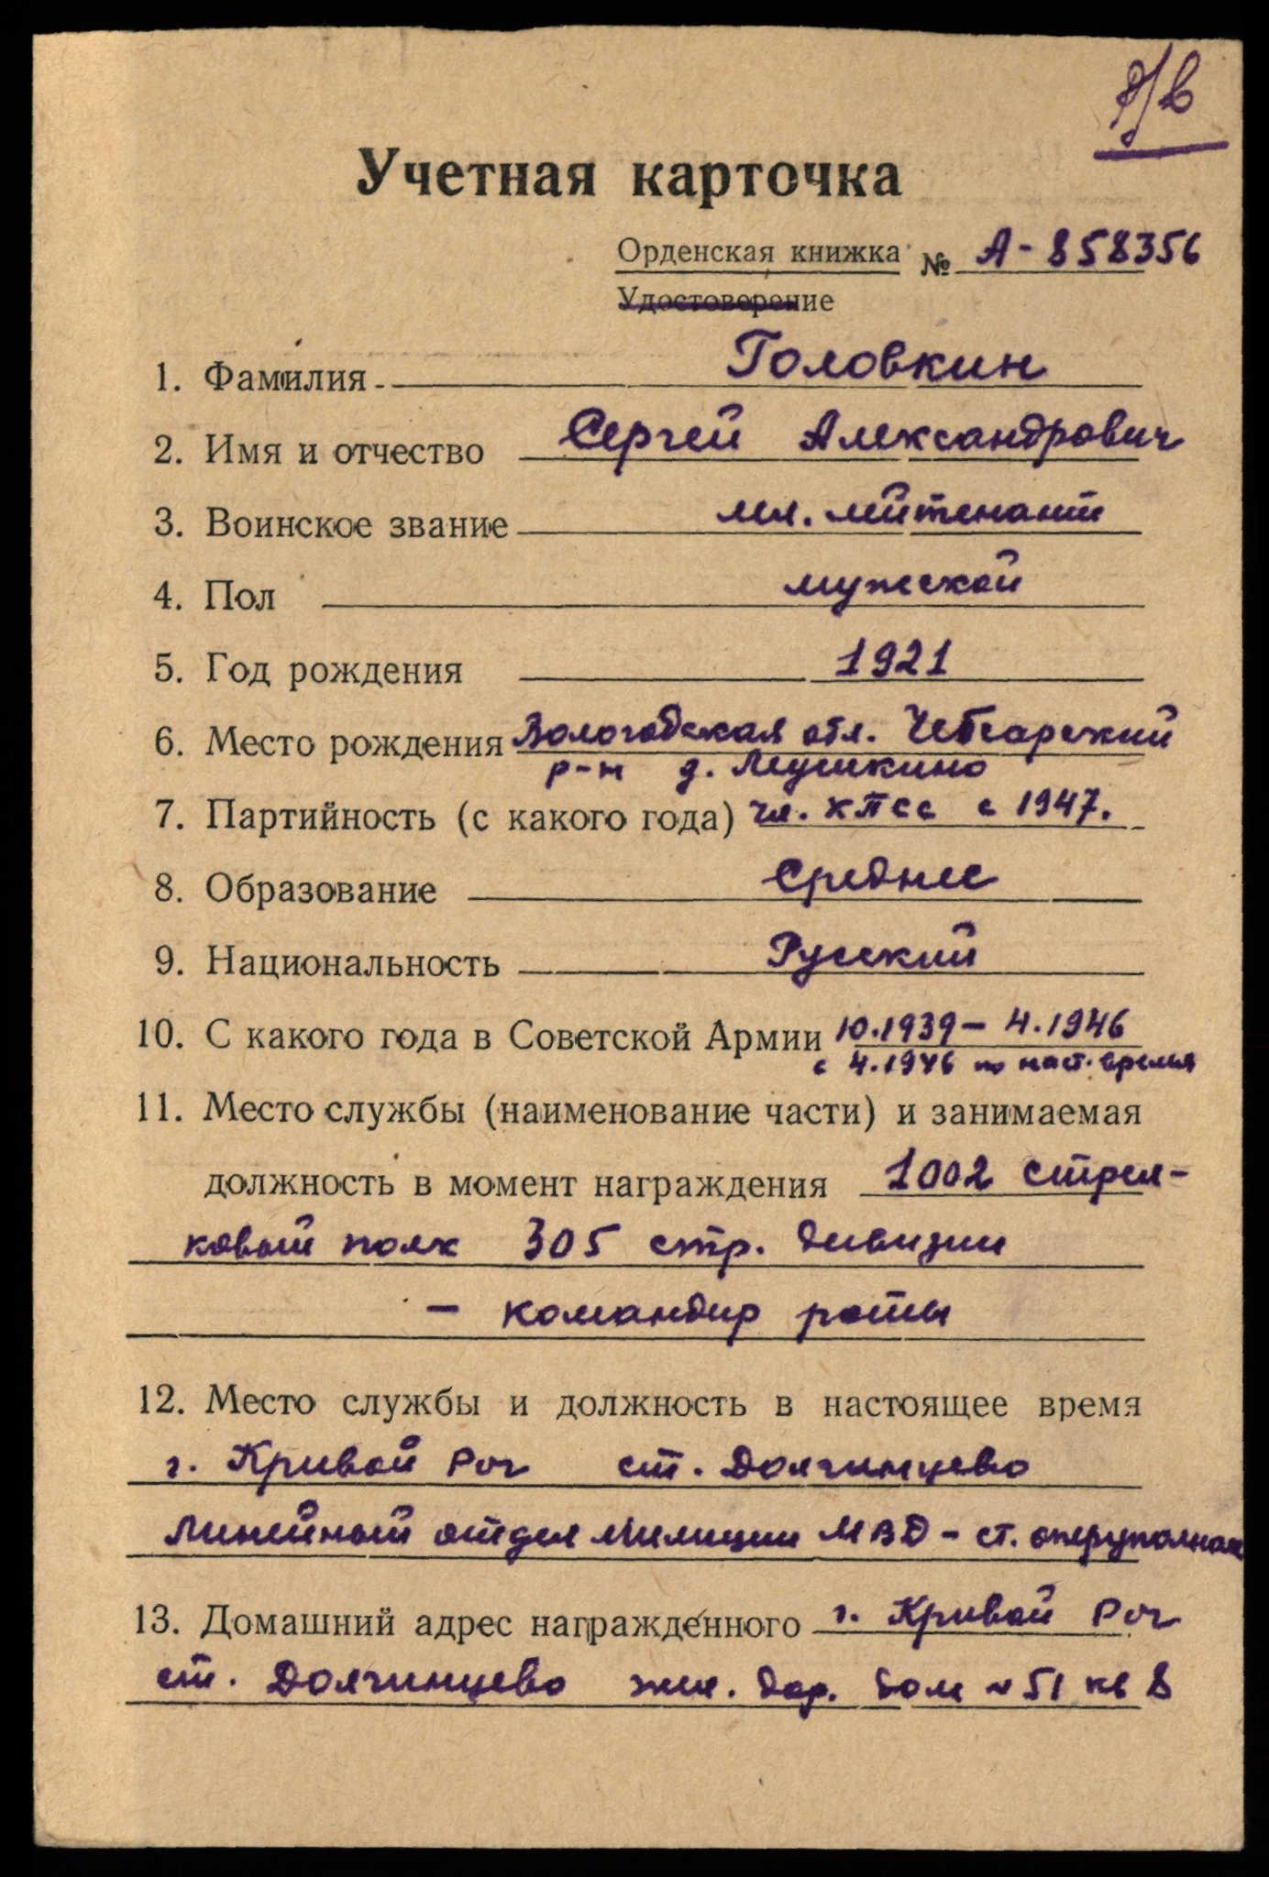 Учетная карточка
Орденская книжка № А-858356
Удостоверение
1. Фамилия Головкин
2. Имя и отчество Сергей Александрович
3. Воинское звание мл. лейтенант
4. Пол мужской
5. Год рождения 1921
6. Место рождения Вологодская обл. Чебсарский
р-н д. Мушкино
7. Партийность (с какого года) чл. КПСС с 1947.
8. Образование среднее
9. Национальность Русский
10. С какого года в Советской Армии 10.1939 – 4.1946
с 4.1946 по наст. время
11. Место службы (наименование части) и занимаемая
должность в момент награждения 1002 стрел-
ковый полк 305 стр. дивизии
– командир роты
12. Место службы и должность в настоящее время
г. Кривой Рог ст. Долгинцево
Линейный отдел Милиции МВД – ст. оперуполном
13. Домашний адрес награжденного г. Кривой Рог
ст. Долгинцево жил. дор. дом № 51 кв 8